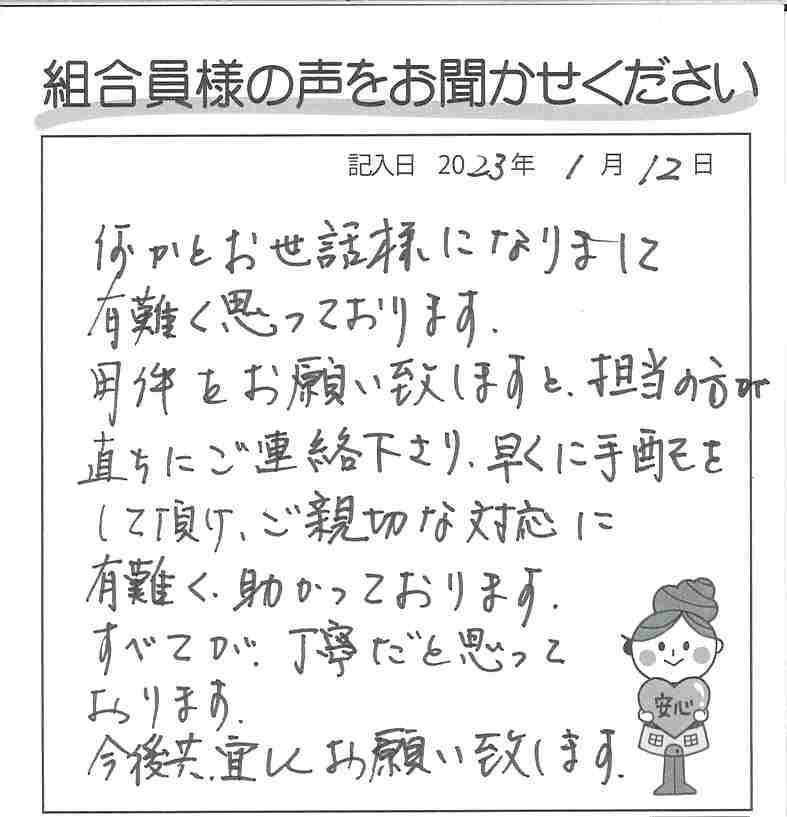 組合員様の声をお聞かせください
記入日 2023年 1月 12日
何かとお世話様になりまして
有難く思っております.
用件をお願い致しますと、担当の方が
直ちにご連絡下さり、早くに手配を
して頂け、ご親切な対応に
有難く、助かっております.
すべてが、丁寧だと思って
おります.
今後共、宜しくお願い致します.
安心